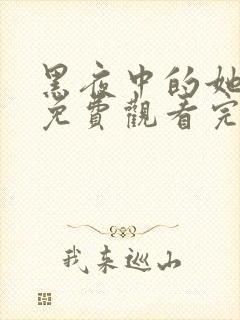 黑夜中的她
免費觀看完
我來巡山